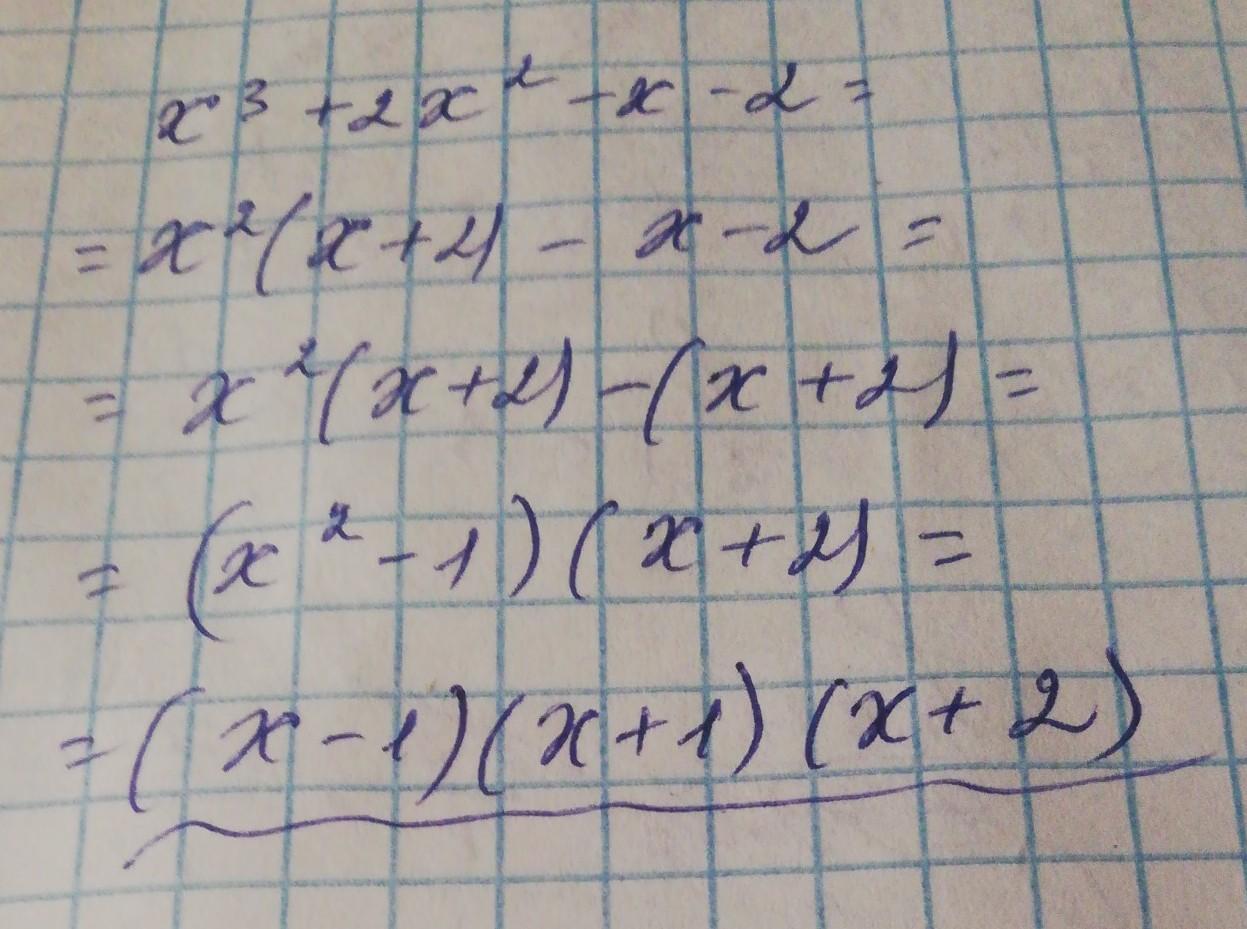 x³ + 2x² - x - 2 =
= x²(x+2) - x - 2 =
= x²(x+2) - (x+2) =
= (x² - 1)(x+2) =
= (x - 1)(x+1)(x+2)